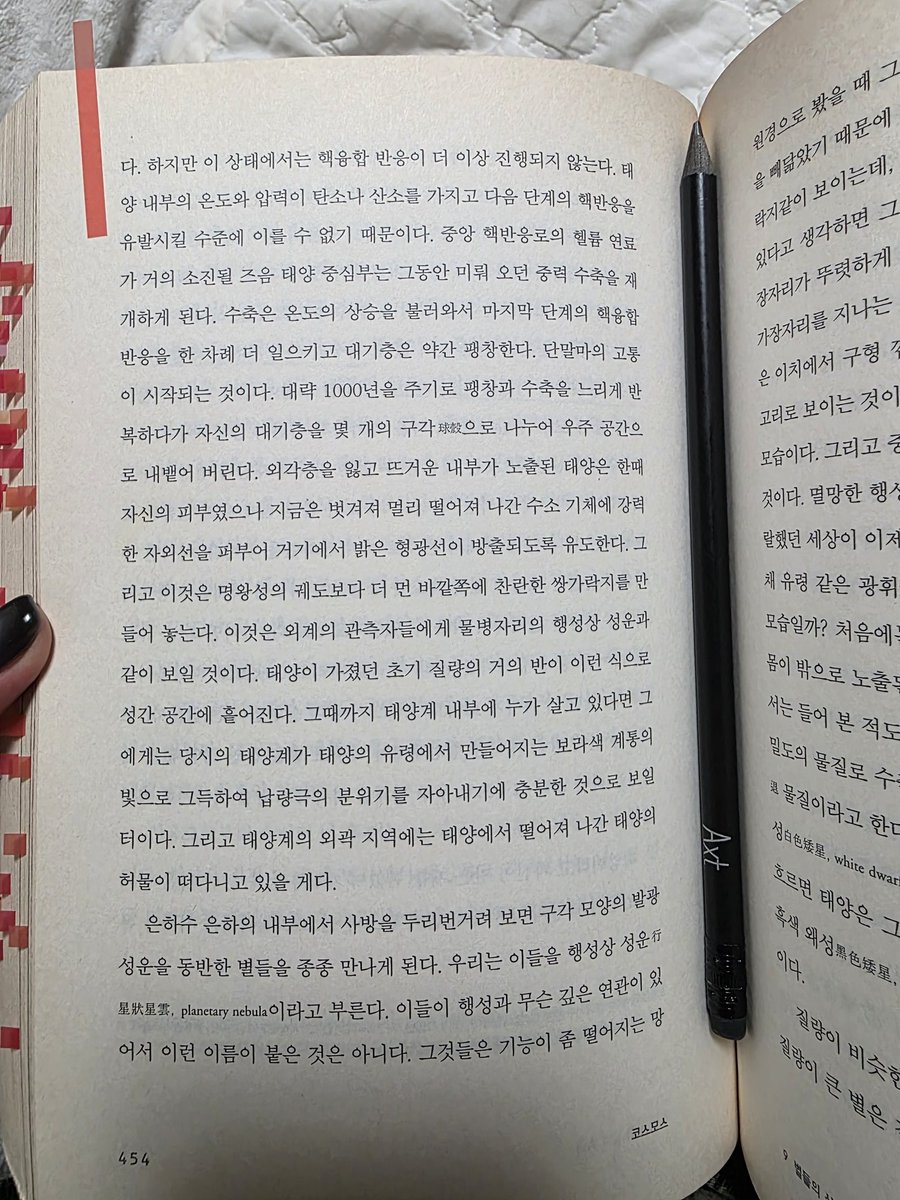 다. 하지만 이 상태에서는 핵융합 반응이 더 이상 진행되지 않는다. 태
양 내부의 온도와 압력이 탄소나 산소를 가지고 다음 단계의 핵반응을
유발시킬 수준에 이를 수 없기 때문이다. 중앙 핵반응로의 헬륨 연료
가 거의 소진될 즈음 태양 중심부는 그동안 미뤄 오던 중력 수축을 재
개하게 된다. 수축은 온도의 상승을 불러와서 마지막 단계의 핵융합
반응을 한 차례 더 일으키고 대기층은 약간 팽창한다. 단말마의 고통
이 시작되는 것이다. 대략 1000년을 주기로 팽창과 수축을 느리게 반
복하다가 자신의 대기층을 몇 개의 구각球殼으로 나누어 우주 공간으
로 내뱉어 버린다. 외각층을 잃고 뜨거운 내부가 노출된 태양은 한때
자신의 피부였으나 지금은 벗겨져 멀리 떨어져 나간 수소 기체에 강력
한 자외선을 퍼부어 거기에서 밝은 형광선이 방출되도록 유도한다. 그
리고 이것은 명왕성의 궤도보다 더 먼 바깥쪽에 찬란한 쌍가락지를 만
들어 놓는다. 이것은 외계의 관측자들에게 물병자리의 행성상 성운과
같이 보일 것이다. 태양이 가졌던 초기 질량의 거의 반이 이런 식으로
성간 공간에 흩어진다. 그때까지 태양계 내부에 누가 살고 있다면 그
에게는 당시의 태양계가 태양의 유령에서 만들어지는 보라색 계통의
빛으로 그득하여 납량극의 분위기를 자아내기에 충분한 것으로 보일
터이다. 그리고 태양계의 외곽 지역에는 태양에서 떨어져 나간 태양의
허물이 떠다니고 있을 게다.
은하수 은하의 내부에서 사방을 두리번거려 보면 구각 모양의 발광
성운을 동반한 별들을 종종 만나게 된다. 우리는 이들을 행성상 성운行
星狀星雲, planetary nebula이라고 부른다. 이들이 행성과 무슨 깊은 연관이 있
어서 이런 이름이 붙은 것은 아니다. 그것들은 기능이 좀 떨어지는 망
454
코스모스
Axt
원경으로 봤을 때 그
을 빼닮았기 때문에
락지같이 보이는데,
있다고 생각하면 그
장자리가 뚜렷하게
가장자리를 지나는
은 이치에서 구형 
고리로 보이는 것이
모습이다. 그리고 중
것이다. 멸망한 행성
랄했던 세상이 이제
채 유령 같은 광휘
모습일까? 처음에
몸이 밖으로 노출
서는 들어 본 적도
밀도의 물질로 수
退 물질이라고 한다
성白色矮星, white dwarf
흐르면 태양은 그
흑색 왜성黑色矮星,
이다.
질량이 비슷한
질량이 큰 별은
9 별들의